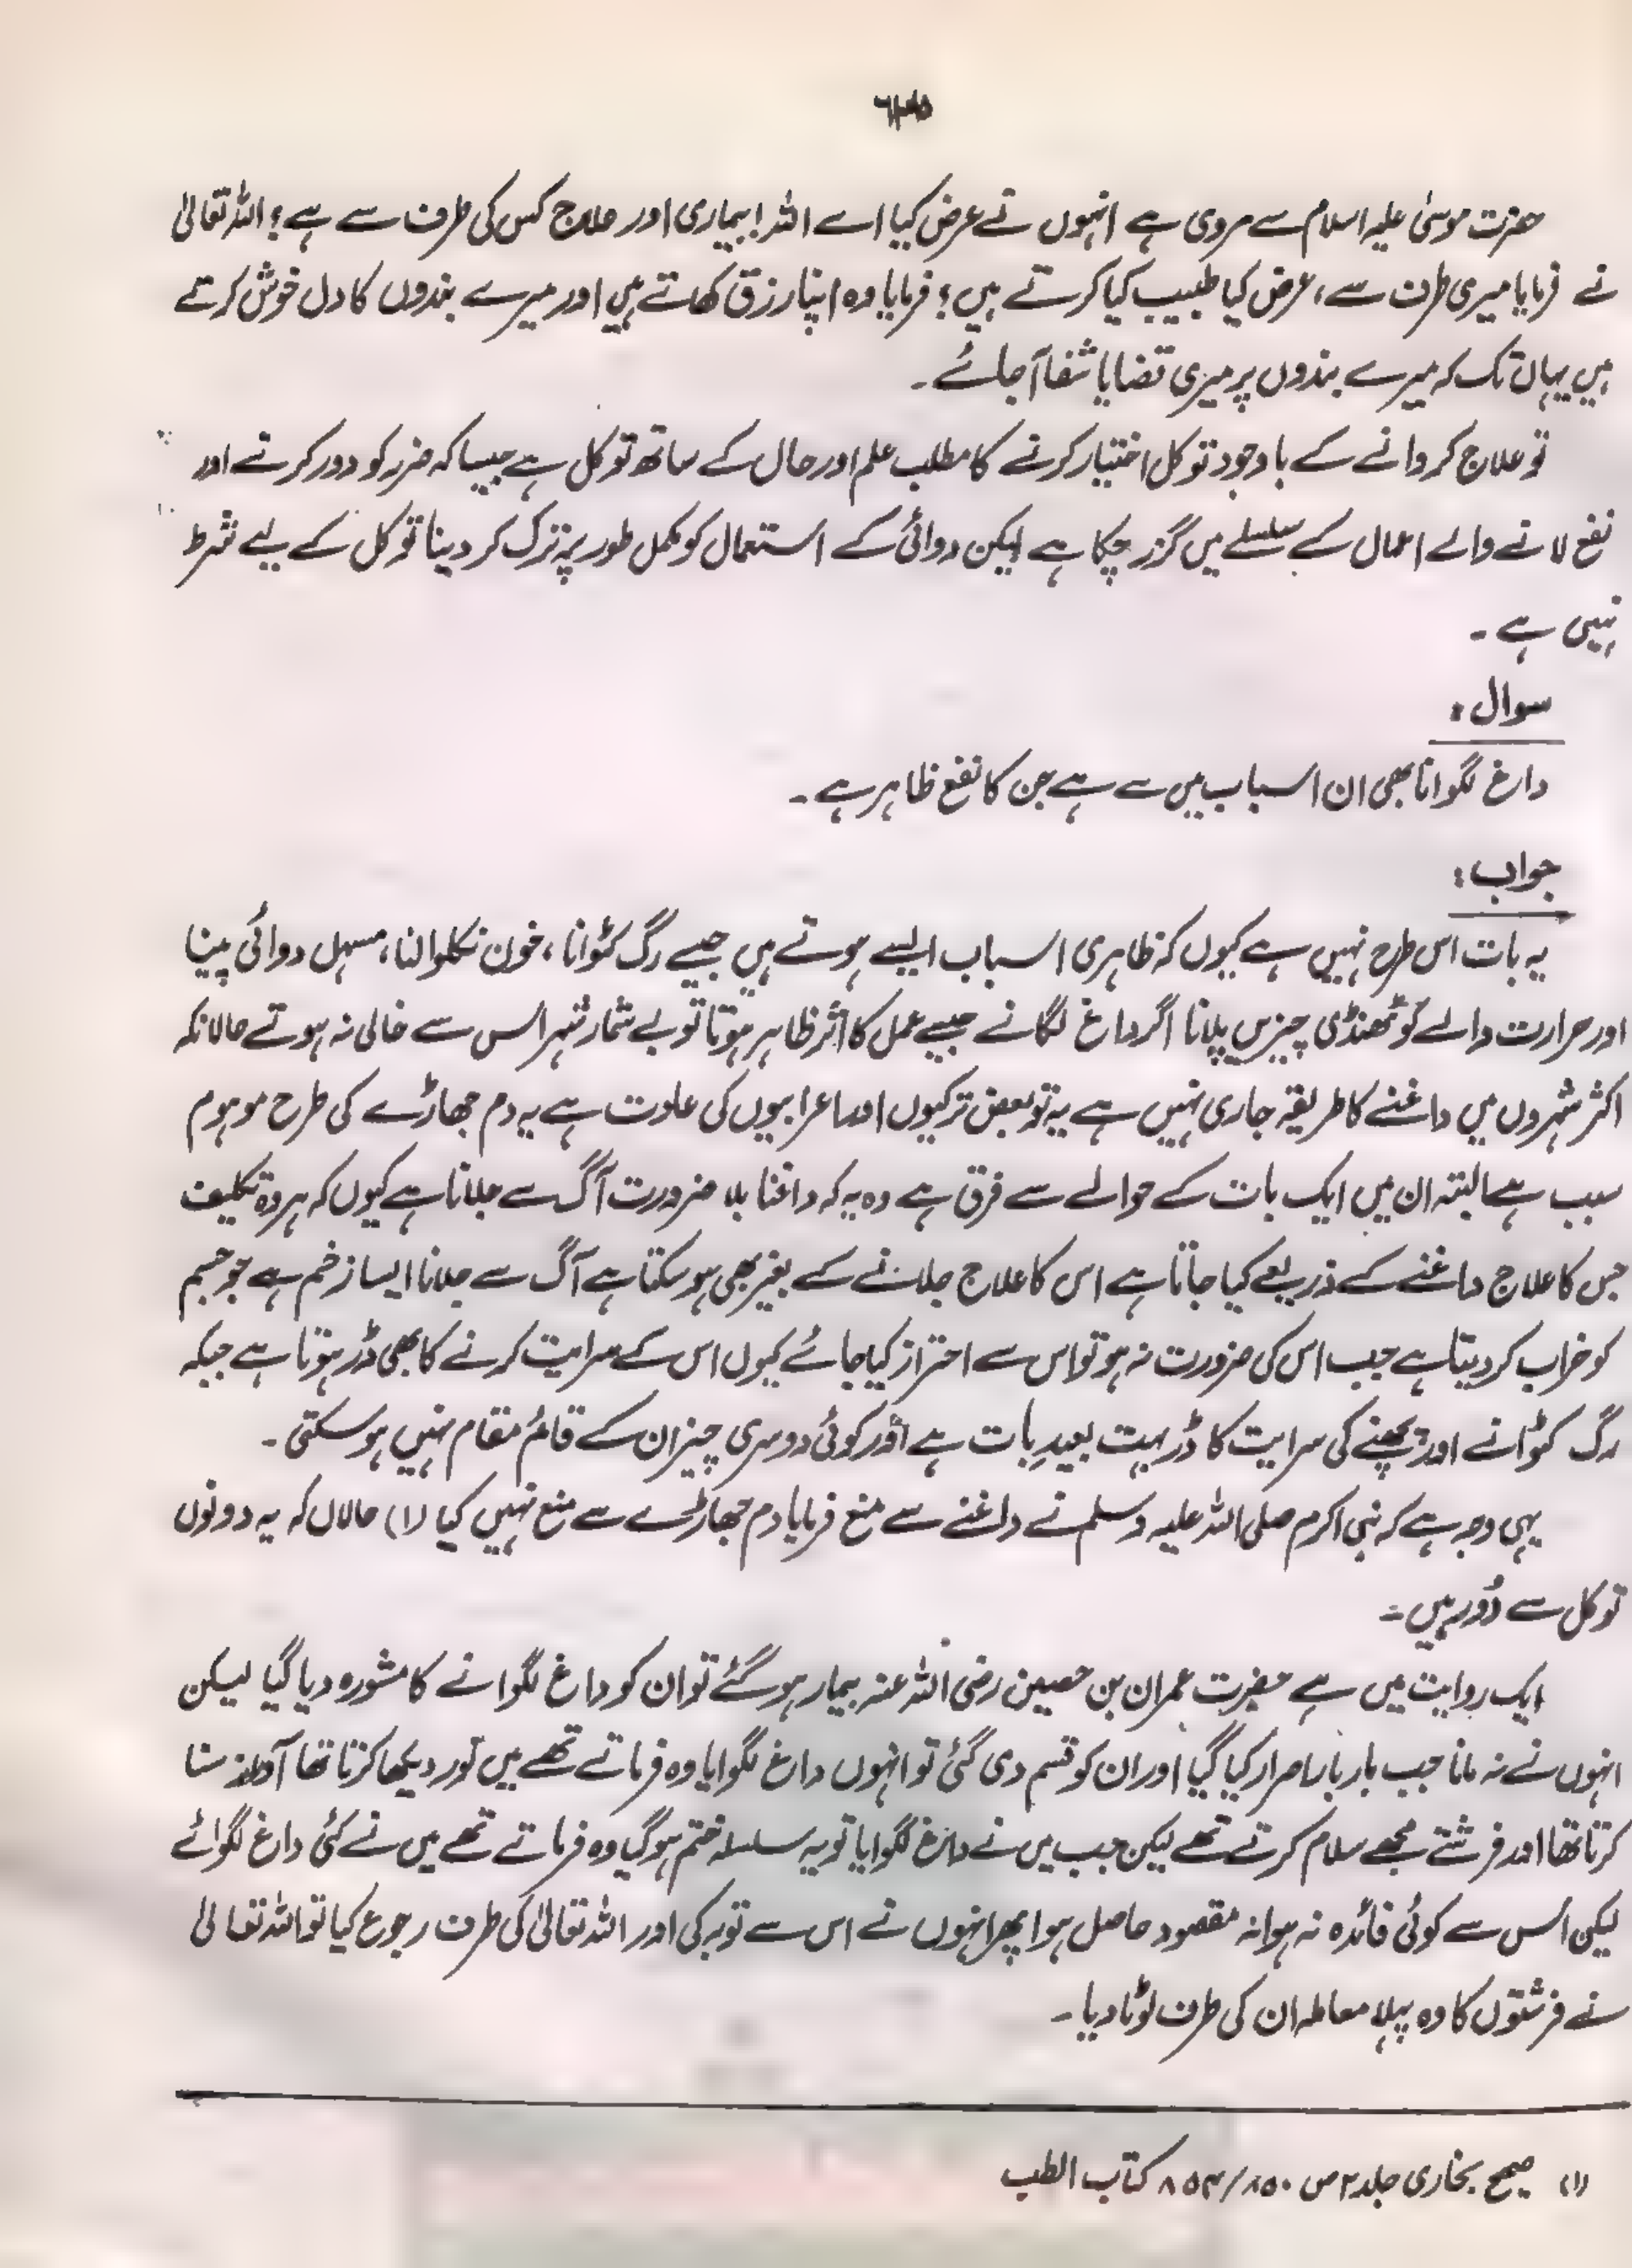 ۶۳۵
حضرت موسیٰ علیہ السلام سے مروی ہے انہوں نے عرض کیا اے اللہ! بیماری اور علاج کس کی طرف سے ہے؟ اللہ تعالیٰ
نے فرمایا میری طرف سے، عرض کیا طبیب کیا کرتے ہیں؟ فرمایا وہ اپنا رزق کھاتے ہیں اور میرے بندوں کا دل خوش کرتے
ہیں یہاں تک کہ میرے بندوں پر میری قضا یا شفا آجائے۔
تو علاج کروانے کے باوجود توکل اختیار کرنے کا مطلب علم اور حال کے ساتھ توکل ہے جیسا کہ ضرر کو دور کرنے اور
نفع لانے والے اعمال کے سلسلے میں گزر چکا ہے لیکن دوائی کے استعمال کو مکمل طور پر ترک کر دینا توکل کے لیے شرط
نہیں ہے۔
سوال:
داغ لگوانا بھی ان اسباب میں سے ہے جن کا نفع ظاہر ہے۔
جواب:
یہ بات اس طرح نہیں ہے کیوں کہ ظاہری اسباب ایسے ہوتے ہیں جیسے رگ کٹوانا، خون نکلوالنا، مسہل دوائی پینا
اور حرارت والے کو ٹھنڈی چیزیں پلانا اگر داغ لگانے جیسے عمل کا اثر ظاہر ہوتا تو بے شمار شہر اس سے خالی نہ ہوتے حالانکہ
اکثر شہروں میں داغنے کا طریقہ جاری نہیں ہے یہ تو بعض ترکیوں اور اعرابیوں کی عادت ہے یہ دم جھاڑے کی طرح موہوم
سبب ہے البتہ ان میں ایک بات کے حوالے سے فرق ہے وہ یہ کہ داغنا بلا ضرورت آگ سے جلانا ہے کیوں کہ ہر وہ تکلیف
جس کا علاج داغنے کے ذریعے کیا جاتا ہے اس کا علاج جلانے کے بغیر بھی ہو سکتا ہے آگ سے جلانا ایسا زخم ہے جو جسم
کو خراب کر دیتا ہے جب اس کی ضرورت نہ ہو تو اس سے احتراز کیا جائے کیوں اس کے سرایت کرنے کا بھی ڈر ہوتا ہے جبکہ
رگ کٹوانے اور پچھنے کی سرایت کا ڈر بہت بعید بات ہے اور کوئی دوسری چیز ان کے قائم مقام نہیں ہو سکتی۔
یہی وجہ ہے کہ نبی اکرم صلی اللہ علیہ وسلم نے داغنے سے منع فرمایا دم جھاڑے سے منع نہیں کیا (۱) حالاں کہ یہ دونوں
توکل سے دُور ہیں۔
ایک روایت میں ہے حضرت عمران بن حصین رضی اللہ عنہ بیمار ہو گئے تو ان کو داغ لگوانے کا مشورہ دیا گیا لیکن
انہوں نے نہ مانا جب بار بار اصرار کیا گیا اور ان کو قسم دی گئی تو انہوں داغ لگوایا وہ فرماتے تھے میں نور دیکھا کرتا تھا آواز سنا
کرتا تھا اور فرشتے مجھے سلام کرتے تھے لیکن جب میں نے داغ لگوایا تو یہ سلسلہ ختم ہو گیا وہ فرماتے تھے میں نے کئی داغ لگوائے
لیکن اس سے کوئی فائدہ نہ ہوا نہ مقصود حاصل ہوا پھر انہوں نے اس سے توبہ کی اور اللہ تعالیٰ کی طرف رجوع کیا تو اللہ تعالیٰ
نے فرشتوں کا وہ پہلا معاملہ ان کی طرف لوٹا دیا۔
(۱) صحیح بخاری جلد ۲ ص ۸۵۰/۸۵۴ کتاب الطب